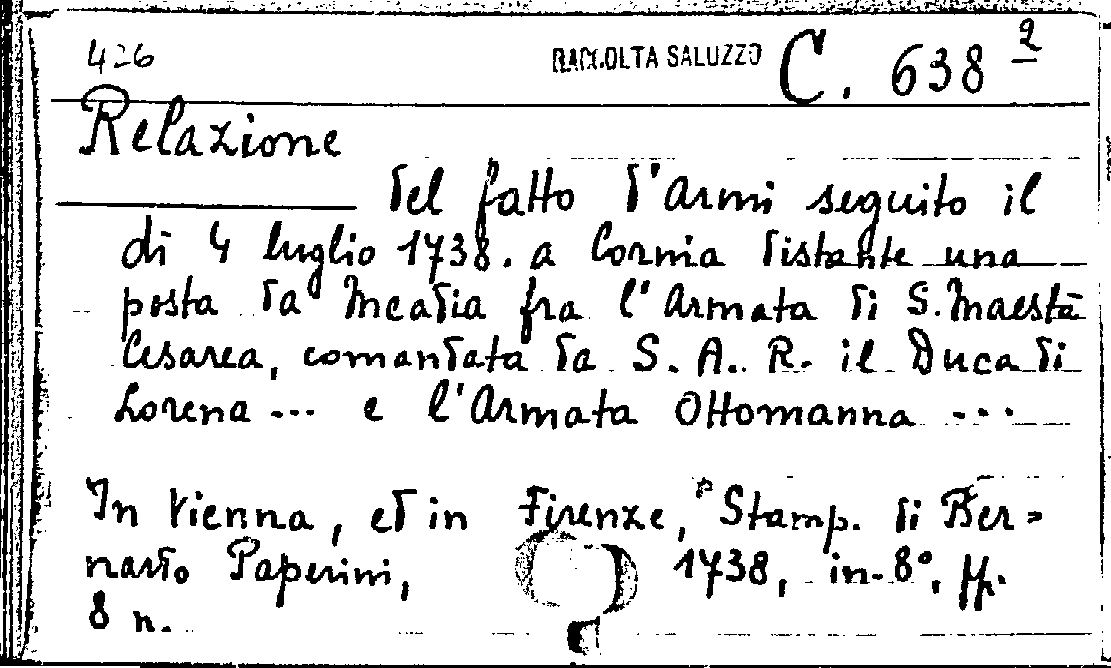 426 RACCOLTA SALUZZO C. 638 2
Relazione
del fatto d'armi seguito il
di 4 luglio 1738. a Cornia distante una
posta da Meadia fra l'Armata di S. Maestà
Cesarea, comandata da S. A. R. il Duca di
Lorena ... e l'Armata Ottomanna ...
In Vienna, ed in Firenze, Stamp. di Ber=
nardo Paperini, 1738, in-8°, pp.
8 n.